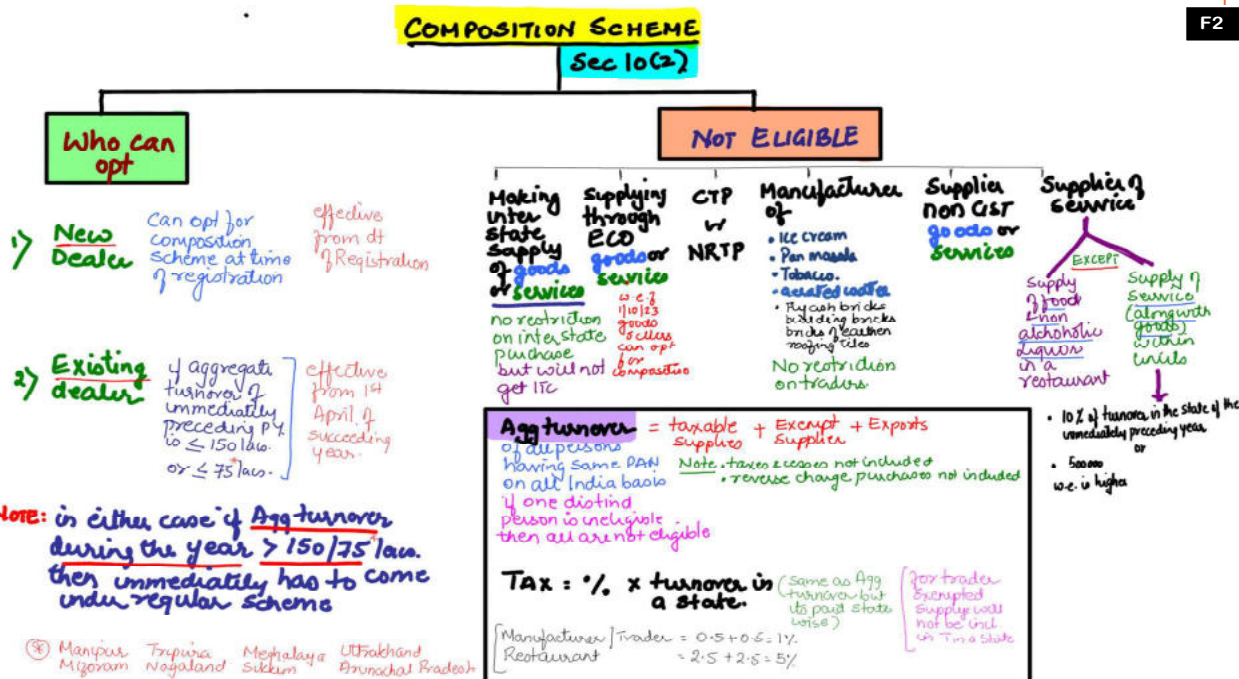 COMPOSITION SCHEME
F2
Sec 10(2)
Who can
opt
NOT ELIGIBLE
1) New
Dealer
Can opt for
composition
scheme at time
of registration
effective
from dt
of Registration
2) Existing
dealer
if aggregate
turnover of
immediately
preceding P.Y
is ≤ 150 lacs.
or ≤ 75* lacs.
effective
from 1st
April of
succeeding
year.
NOTE: in either case if Agg turnover
during the year > 150/75* lacs.
then immediately has to come
under regular scheme
* Manipur Tripura Meghalaya Uttrakhand
Mizoram Nagaland Sikkim Arunachal Pradesh
Making
inter
state
supply
of goods
or services
no restriction
on interstate
purchase
but will not
get ITC
Supplying
through
ECO
goods or
services
w.e.f
1/10/23
goods
sellers
can opt
for
composition
CTP
or
NRTP
Manufacturer
of
• Ice cream
• Pan masala
• Tobacco.
• aerated water
• Fly ash bricks
building bricks
bricks of earthen
roofing tiles
No restriction
on traders.
Supplier
non GST
goods or
services
Supplier of
service
EXCEPT
Supply
of food
& non
alchoholic
Liquor
in a
restaurant
Supply of
service
(along with
goods)
within
limits
• 10% of turnover in the state of the
immediately preceding year
or
• 500000
w.e. is higher
Agg turnover = taxable + Exempt + Exports
supplies Supplier
of all persons
having same PAN
on all India basis
Note • taxes & cesses not included
• reverse charge purchases not included
if one distind
person is ineligible
then all are not eligible
TAX = % x turnover in
a state.
(same as Agg
turnover but
its paid state
wise)
for trader
Exempted
Supply will
not be incl.
in T in a state
Manufacturer / Trader = 0.5 + 0.5 = 1%
Restaurant = 2.5 + 2.5 = 5%